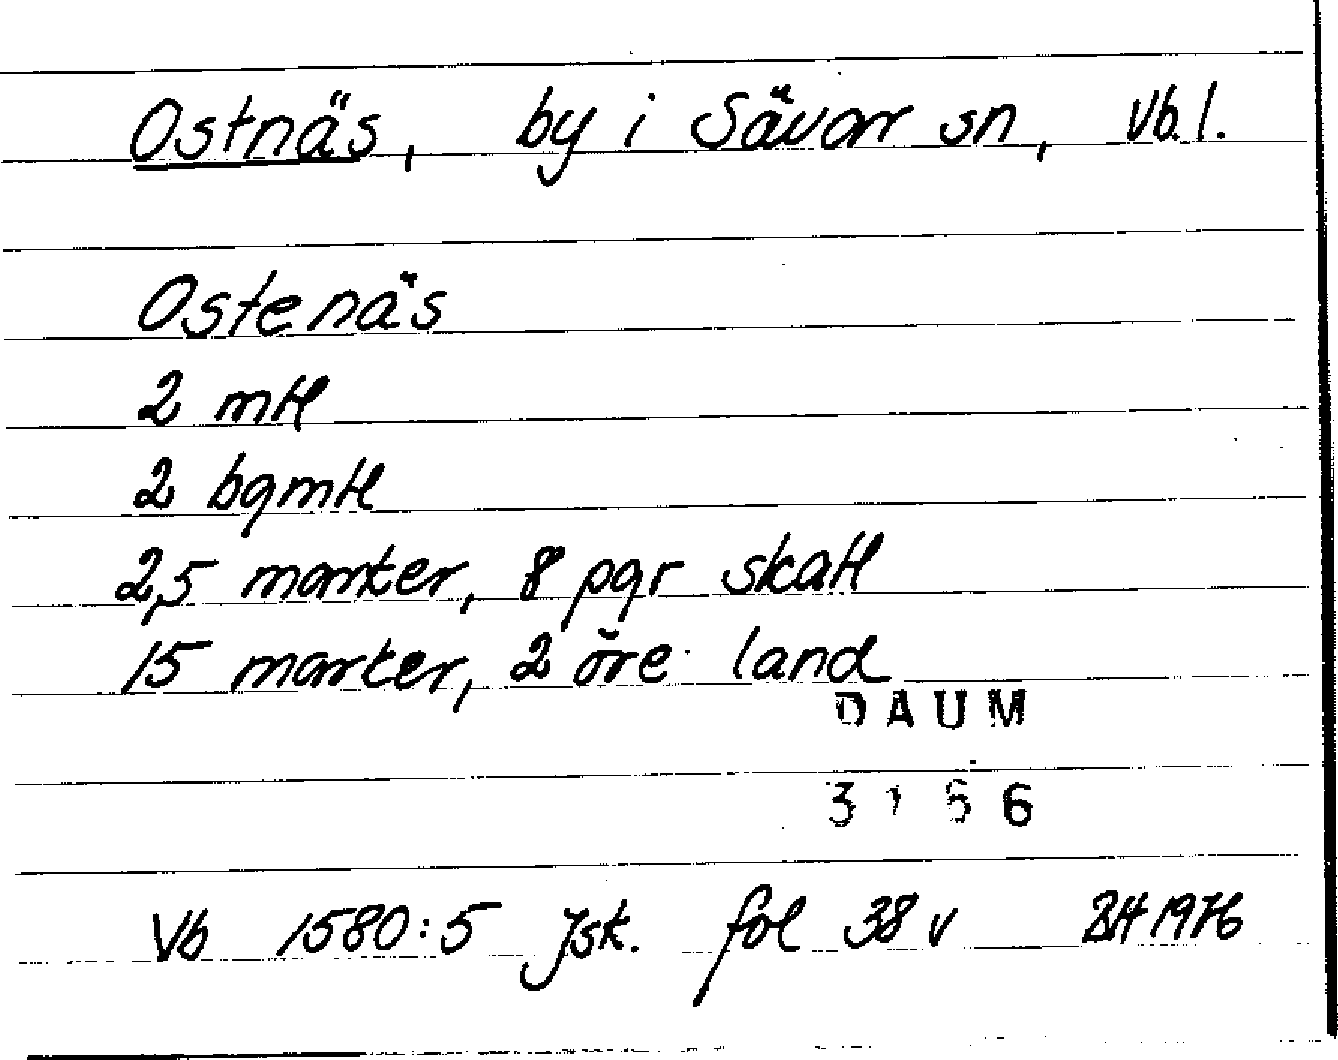 Ostnäs, by i Sävar sn, Vb.l.
Ostenäs
2 mtl
2 bqmtl
2,5 marker, 8 pgr skatt
15 marker, 2 öre land
DAUM
3156
Vb 1580:5 Jsk. fol 38 v 1976